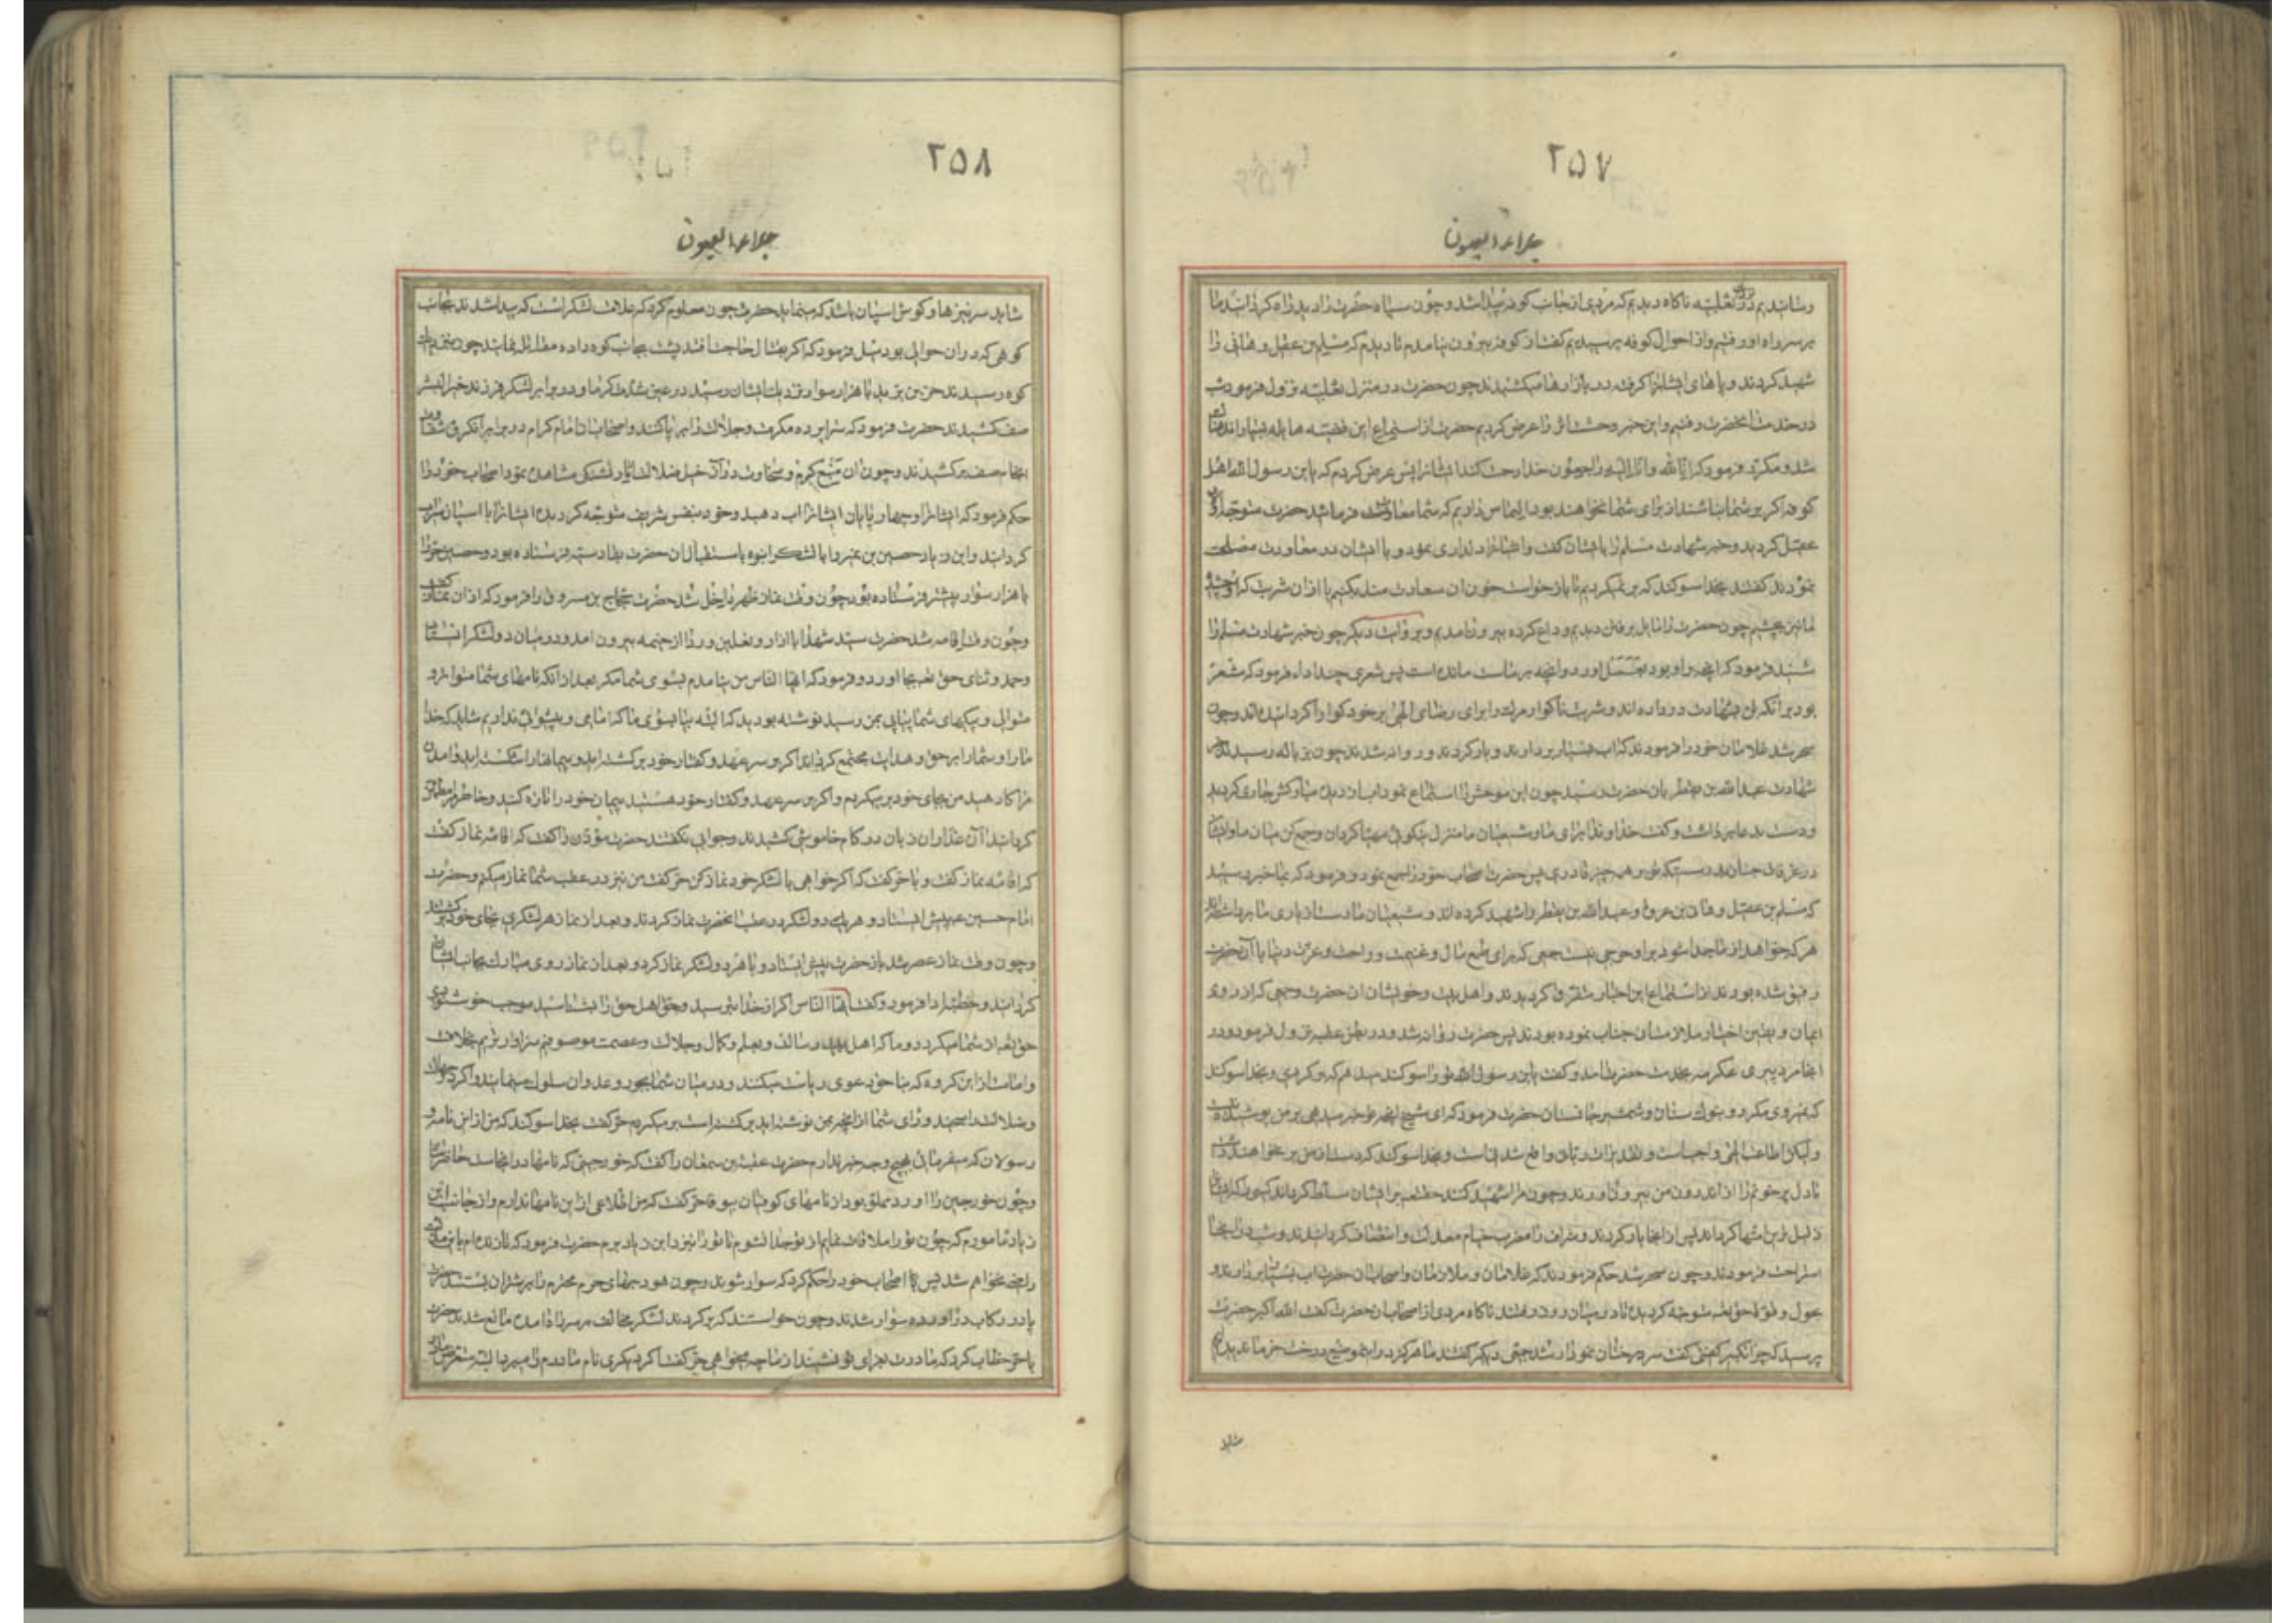 ٢٥٧
جلاء العیون
رسانیدیم در ثعلبیه ناکاه دیدیم که مردی از جانب کوفه پیدا شد و چون سپاه حضرت را دید راه کردانید ما
بر سر راه او رفتیم و از احوال کوفه پرسیدیم کفت از کوفه بیرون نیامدم تا دیدم که مسلم بن عقیل و هانی را
شهید کردند و پاهای ایشانرا کرفته در بازارها میکشیدند چون حضرت در منزل ثعلبیه نزول فرمود شب
در خدمت انحضرت رفتیم و این خبر وحشت اثر را عرض کردیم حضرت از استماع این قضیه هایله بسیار اندوهناک
شد و مکرر فرمود که انا لله و انا الیه راجعون خدا رحمت کند ایشانرا پس عرض کردیم که یا بن رسول الله اهل
کوفه اکر بر شما نباشند از برای شما نخواهند بود التماس داریم که شما معاودت فرمائید حضرت متوجه اولاد
عقیل کردید و خبر شهادت مسلم را بایشان کفت و ایشانرا دلداری نمود و با ایشان در معاودت مصلحت
نمودند کفتند بخدا سوکند که بر نمیکردیم تا باز خواست خون ان سعادت مند بکنیم یا از ان شربت که او چشید
ما نیز بچشیم چون حضرت را مایل برفتن دیدیم وداع کرده بیرون امدیم و بروایت دیکر چون خبر شهادت مسلم را
شنید فرمود که انچه بر او بود بعمل اورد و انچه بر ماست مانده است پس شعری چند اداء فرمود که مشعر
بود بر انکه تن بشهادت در داده اند و شربت ناکوار مرک را برای رضای الهی بر خود کوارا کردانیده اند و چون
سحر شد غلامان خود را فرمودند که اب بسیار بردارند و بار کردند و روانه شدند چون بزباله رسیدند خبر
شهادت عبد الله بن یقطر بان حضرت رسید چون این موحش را استماع نمود اب از دیده مبارکش جاری کردید
و دست بدعا برداشت و کفت خداوندا برای ما و شیعیان ما منزل نیکوئی مهیا کردان و جمع کن میان ما و ایشان
در غرفات جنان بدرستیکه تو بر همه چیز قادری پس حضرت اصحاب خود را جمع نمود و فرمود که بما خبر رسید
که مسلم بن عقیل و هانی بن عروة و عبد الله بن یقطر را شهید کرده اند و شیعیان ما دست از یاری ما برداشته اند
هر که خواهد از ما جدا شود بر او حرجی نیست جمعی که برای طمع مال و غنیمت و راحت و عزت دنیا با آن حضرت
رفیق شده بودند از استماع این اخبار متفرق کردیدند و اهل بیت و خویشان ان حضرت و جمعی که از روی
ایمان و یقین اختیار ملازمت ان جناب نموده بودند پس حضرت روان شد و در بطن عقبه نزول فرمود و در
انجا مرد پیری عکرمه بخدمت حضرت امد و کفت یا بن رسول الله تو را سوکند میدهم که برکردی و بخدا سوکند
که نمیروی مکر رو بنوک سنان و شمشیر جان ستان حضرت فرمود که ای شیخ انچه تو خبر میدهی بر من پوشیده نیست
و لیکن اطاعت الهی واجب است و تقدیرات ربانی واقع شدنی است و بخدا سوکند که دست از من بر نخواهند داشت
تا دل پر خونم را از اندرون من بیرون اورند و چون مرا شهید کنند حقتعالی بر ایشان مسلط کرداند کسی را که ایشان را
ذلیل ترین امتها کرداند پس از انجا بار کردند و شراف را مضرب خیام معدلت و انتصاف کردانیدند و شب در انجا
استراحت فرمودند و چون سحر شد حکم فرمودند که غلامان و ملازمان و اصحاب ان حضرت اب بسیار بردارند و
بحول و قوة حقتعالی متوجه کردیده تا در میان روز رفتند ناکاه مردی از اصحاب ان حضرت کفت الله اکبر حضرت
پرسید که چرا تکبیر کفتی کفت سر درختان نمودار شد جمعی دیکر کفتند ما هرکز در این موضع درخت خرما ندیده ایم
شاید
٢٥٨
جلاء العیون
شاید سر نیزها و کوش اسبان باشد که مینماید حضرت چون معلوم کرد که علامت لشکر است که پیدا شدند بجانب
کوهی که در ان حوالی بود میل فرمود که اکر بقتال حاجت افتد پشت بجانب کوه داده مقابله نمایند چون بنزدیک
کوه رسیدند حر بن یزید با هزار سوار نزدیک ایشان رسید در عین شدت کرما و در برابر لشکر فرزند خیر البشر
صف کشیدند حضرت فرمود که سراپرده مکرمت و جلالت را بر پا کنند و اصحاب ان امام کرام در برابر ان کروه شقاوت
انجام صف بر کشیدند و چون ان منبع کرم و سخاوت در آن خیل ضلالت اثار تشنکی مشاهده نمود اصحاب خود را
حکم فرمود که ایشانرا و چهارپایان ایشانرا اب دهید و خود بنفس شریف متوجه کردیده ایشانرا با اسبان سیراب
کردانید و ابن زیاد حصین بن نمیر را با لشکر انبوه باستقبال ان حضرت بقادسیه فرستاده بود و حصین حر را
با هزار سوار پیشتر فرستاده بود چون وقت نماز ظهر داخل شد حضرت حجاج بن مسروق را فرمود که اذان نماز کفت
و چون وقت اقامه شد حضرت سید شهدا با ازار و نعلین و ردا از خیمه بیرون امد و در میان دو لشکر ایستاد
و حمد و ثنای حق تعالی بجا اورد و فرمود که ایها الناس من نیامدم بسوی شما مکر بعد از انکه نامهای شما متواتر و
متوالی و پیکهای شما پیاپی بمن رسید نوشته بودید که البته بیا بسوی ما که امامی و پیشوائی نداریم شاید که خدا
ما را و شما را بر حق و هدایت مجتمع کرداند اکر بر سر عهد و کفتار خود برکشته اید و پیمانها را شکسته اید و امدن
مرا کارهید من بجای خود بر میکردم و اکر بر سر عهد و کفتار خود هستید پیمان خود را تازه کنید و خاطر مرا مطمئن
کردانید آن غداران زبان در کام خاموشی کشیدند و جوابی نکفتند حضرت مؤذن را کفت که اقامه نماز کفت
که اقامه نماز کفت و با حر کفت که اکر خواهی با لشکر خود نماز کن حر کفت من نیز در عقب شما نماز میکنم و حضرت
امام حسین ع پیش ایستاد و هر یک دو لشکر در عقب انحضرت نماز کردند و بعد از نماز هر لشکری بجای خود برکشتند
و چون وقت نماز عصر شد باز حضرت پیش ایستاد و با هر دو لشکر نماز کرد و بعد از نماز روی مبارک بجانب ایشان
کردانید و خطبه ادا فرمود و کفت ایها الناس اکر از خدا بترسید و حق اهل حق را بشناسید موجب خوشنودی
حق تعالی از شما میکردد و ما که اهل بیت رسالت و بعلم و کمال و جلالت و عصمت موصوفیم سزاوارتریم بخلافت
و امامت از این کروه که بنا حق دعوی ریاست میکنند و در میان شما بجور و عدوان سلوک مینمایند و اکر در جهالت
و ضلالت راسخید و رای شما از انچه بمن نوشته اید برکشته است بر میکردم حر کفت بخدا سوکند که من از این نامها و
رسولان که میفرمائی بهیچ وجه خبر ندارم حضرت عقبة بن سمعان را کفت که خورجینی که نامها در انجاست حاضر ساز
و چون خورجین را اورد مملو بود از نامهای کوفیان بیوفا حر کفت که من اطلاعی از این نامها ندارم و از جانب ابن
زیاد مامورم که چون تو را ملاقات نمایم از تو جدا نشوم تا تو را بنزد ابن زیاد برم حضرت فرمود که تا زنده ام باین مذلت
راضی نخواهم شد پس با اصحاب خود را حکم کرد که سوار شوند و چون هودجهای حرم محترم را بر شتران بستند حضرت
پا در رکاب در اورده سوار شدند و چون خواستند که برکردند لشکر مخالف بر سر راه امده مانع شدند حضرت
با حر خطاب کرد که مادرت بعزای تو نشیند از ما چه میخواهی حر کفت اکر دیکری نام مادرم را میبرد البته متعرض مادر